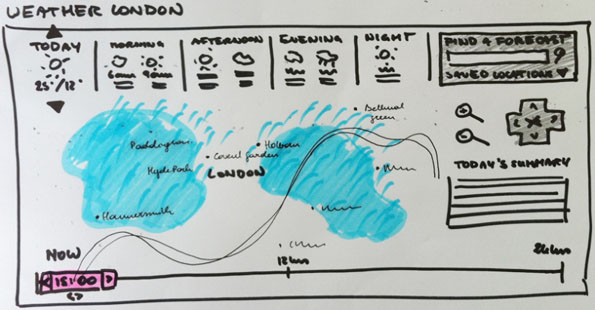 WEATHER LONDON
TODAY
MORNING
AFTERNOON
EVENING
NIGHT
FIND A FORECAST
25°/12°
6am 9am
SAVED LOCATIONS
Bethnal green
Paddington
Holborn
Covent garden
Hyde Park
LONDON
TODAY'S SUMMARY
Hammersmith
NOW
15:00
12hrs
24hrs